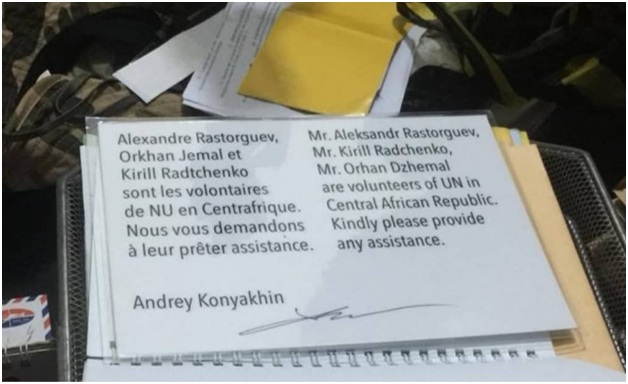 Alexandre Rastorguev,
Orkhan Jemal et
Kirill Radtchenko
sont les volontaires
de NU en Centrafrique.
Nous vous demandons
à leur prêter assistance.
Mr. Aleksandr Rastorguev,
Mr. Kirill Radchenko,
Mr. Orhan Dzhemal
are volunteers of UN in
Central African Republic.
Kindly please provide
any assistance.
Andrey Konyakhin